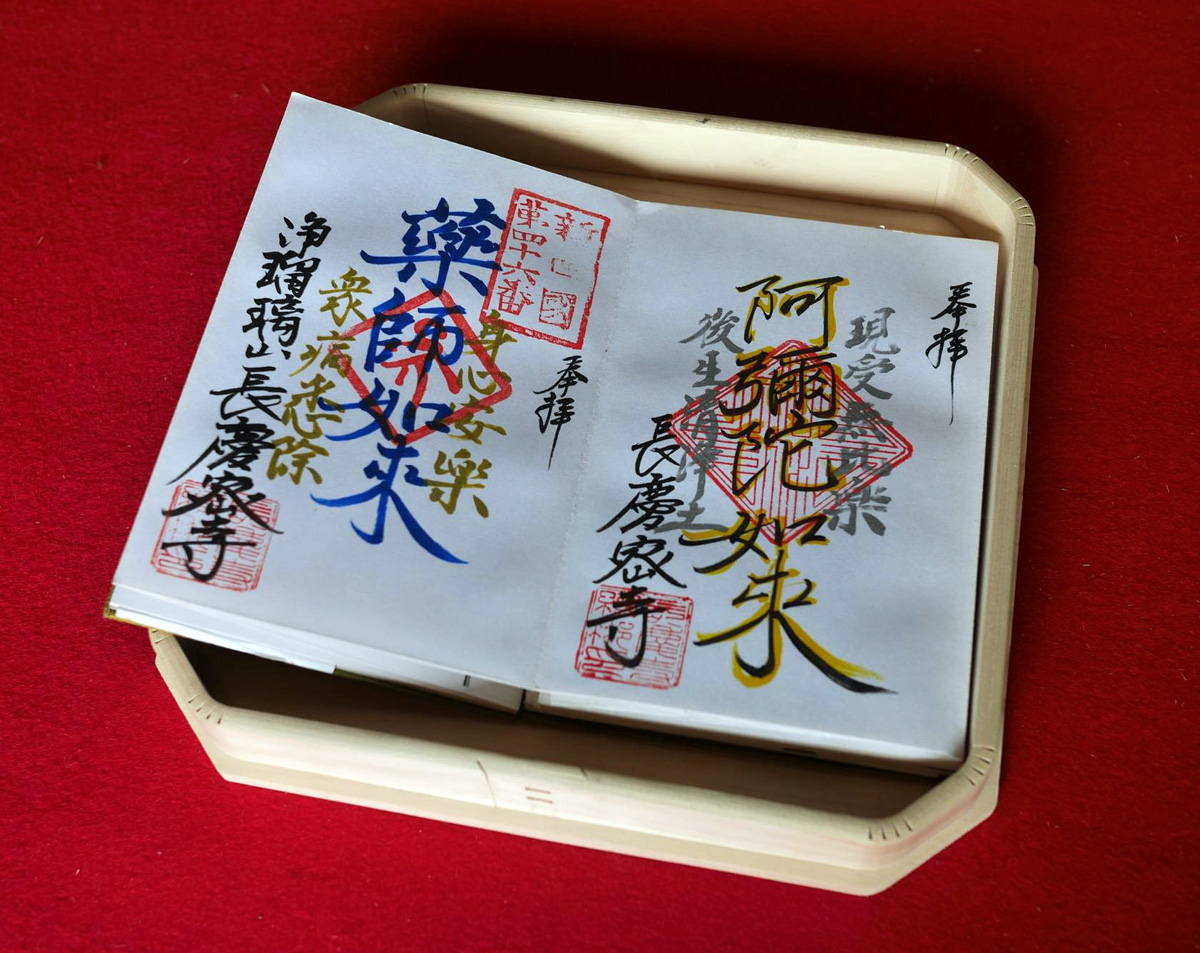 奉拝
現受無比樂
阿彌陀如來
後生清浄土
長慶密寺
奉拝
新四國
第四十六番
身心安樂
藥師如來
衆病悉除
浄瑠璃山長慶密寺